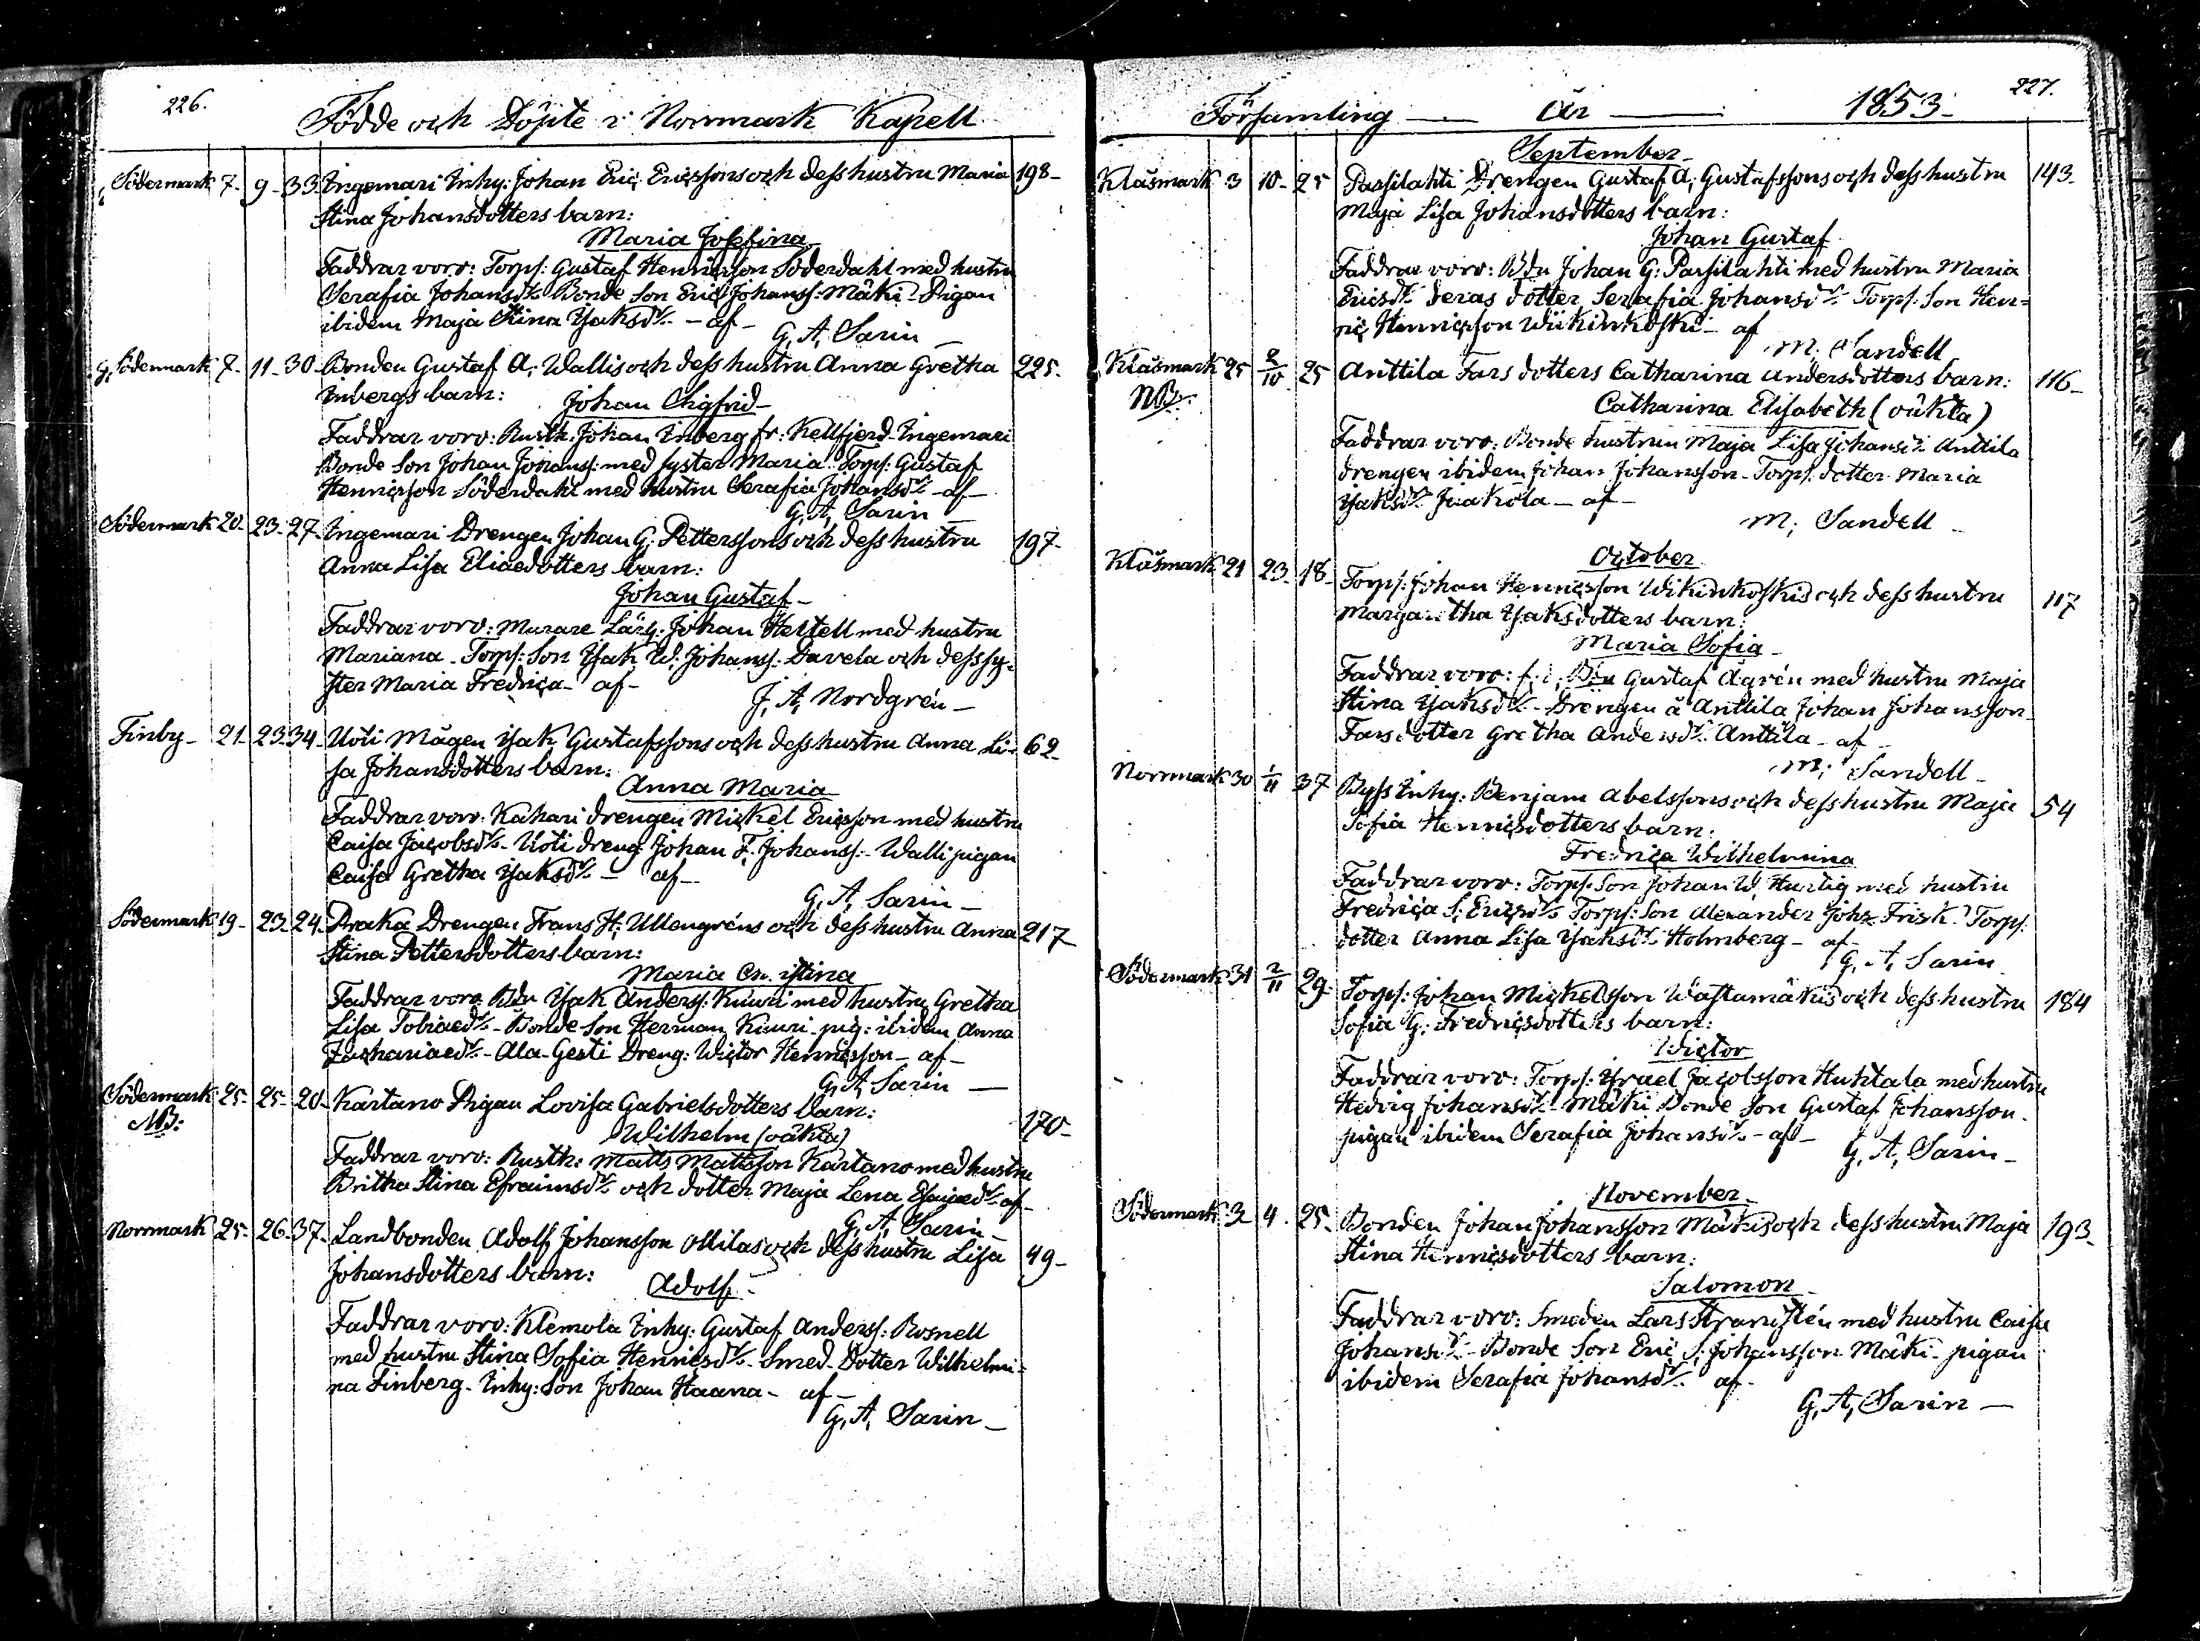 226.
Födde och Döpte i Norrmark Kapell
Södermark 7. 9. 33. Ingemari Inhy: Johan Eric Ericssons och dess hustru Maria 198
Stina Johansdotters barn:
Maria Josefina
Faddrar voro: Torp: Gustaf Henricsson Söderdahl med hustru
Serafia Johansdr Bonde Son Eric Johanss: Mäki Pigan
ibidem Maja Stina Isaksdr - af -
G, A, Sarin
Södermark 7. 11. 30. Bonden Gustaf A, Wallis och dess hustru Anna Gretha 225.
Inbergs barn: Johan Sigfrid
Faddrar voro: Rusth: Johan Inberg fr: Kellfjerd Ingemari
Bonde Son Johan Johanss: med syster Maria. Torp: Gustaf
Henricsson Söderdahl med hustru Serafia Johansdr - af
G, A, Sarin
Södermark 20. 23. 27. Ingemari Drengen Johan G, Petterssons och dess hustru 197.
Anna Lisa Eliaedotters barn:
Johan Gustaf
Faddrar voro: Murare Lärg: Johan Hertell med hustru
Mariana. Torp: Son Isak W. Johanss: Davela och dess sy-
ster Maria Fredrica - af -
J, A, Nordgrén
Finby 21. 23. 34. Uoti Mågen Isak Gustafssons och dess hustru Anna Li- 62.
sa Johansdotters barn:
Anna Maria
Faddrar voro: Kahari drengen Mickel Ericsson med hustru
Caisa Jacobsdr Uoti dreng Johan F. Johanss: Walli pigan
Caisa Gretha Isaksdr - af -
G, A, Sarin
Södermark 19. 23. 24. Praka Drengen Frans H, Ullengréns och dess hustru Anna 217
Stina Pettersdotters barn:
Maria Cristina
Faddrar voro: Bdn Isak Anderss: Kuuri med hustru Gretha
Lisa Tobiaedr Bonde Son Herman Kuuri pig: ibidem Anna
Zachariaedr Ala-Gesti Dreng: Wictor Henricsson - af -
G, A, Sarin
Södermark 25. 25. 20. Kartano Pigan Lovisa Gabrielsdotters barn: 170
NB:
Wilhelm (oäkta)
Faddrar voro: Rusth: Matts Mattsson Kartano med hustru
Britha Stina Efraimsdr och dotter Maja Lena Esaiaedr af
G, A, Sarin
Norrmark 25. 26. 37. Landbonden Adolf Johansson Ollilas och dess hustru Lisa 49
Johansdotters barn: Adolf
Faddrar voro: Klemola Inhy: Gustaf Anderss: Rosnell
med hustru Stina Sofia Henricsdr Smed Dotter Wilhelmi-
na Finberg. Inhy: Son Johan Haana - af -
G, A, Sarin
Församling År 1853. 227.
September
Klåsmark 3 10. 25 Passilahti Drengen Gustaf A, Gustafssons och dess hustru 143.
Maja Lisa Johansdotters barn:
Johan Gustaf
Faddrar voro: Bdn Johan G: Passilahti med hustru Maria
Ericsdr deras dotter Serafia Johansdr Torp: Son Hen-
ric Henricsson Wiikinkoski af
M, Sandell
Klåsmark 25 2/10 25 Anttila Fars dotters Catharina Andersdotters barn: 116
NB:
Catharina Elisabeth (oäkta)
Faddrar voro: Bonde hustrun Maja Lisa Johansdr Anttila
drengen ibidem Johan Johansson. Torp: dotter Maria
Isaksdr Jaakola - af
M, Sandell
October
Klåsmark 21 23. 18. Torp: Johan Henricsson Wikinkoskis och dess hustru 117
Margaretha Isaksdotters barn:
Maria Sofia
Faddrar voro: f. d. Bdn Gustaf Ågrén med hustru Maja
Stina Isaksdr Drengen å Anttila Johan Johansson
Fars dotter Gretha Andersdr Anttila - af
M, Sandell
Norrmark 30 1/11 37 Byss Inhy: Benjam Abelssons och dess hustru Maja 54
Sofia Henricsdotters barn:
Fredrica Wilhelmina
Faddrar voro: Torp: Son Johan W. Hurtig med hustru
Fredrica S, Ericsdr Torp: Son Alexander Johs Frisk. Torp:
dotter Anna Lisa Isaksdr Holmberg - af
G, A, Sarin
Södermark 31 2/11 29. Torp: Johan Mickelsson Wästämäkis och dess hustru 184
Sofia G, Fredricsdotters barn:
Wictor
Faddrar voro: Torp: Israel Jacobsson Huhtala med hustru
Hedvig Johansdr Mäki Bonde Son Gustaf Johansson.
pigan ibidem Serafia Johansdr - af
G, A, Sarin
November
Södermark 3. 4. 25. Bonden Johan Johansson Mäkis och dess hustru Maja 193.
Stina Henricsdotters barn:
Salomon
Faddrar voro: Smeden Lars Stramstén med hustru Caisa
Johansdr Bonde Son Eric S, Johansson Mäki pigan
ibidem Serafia Johansdr af
G, A, Sarin